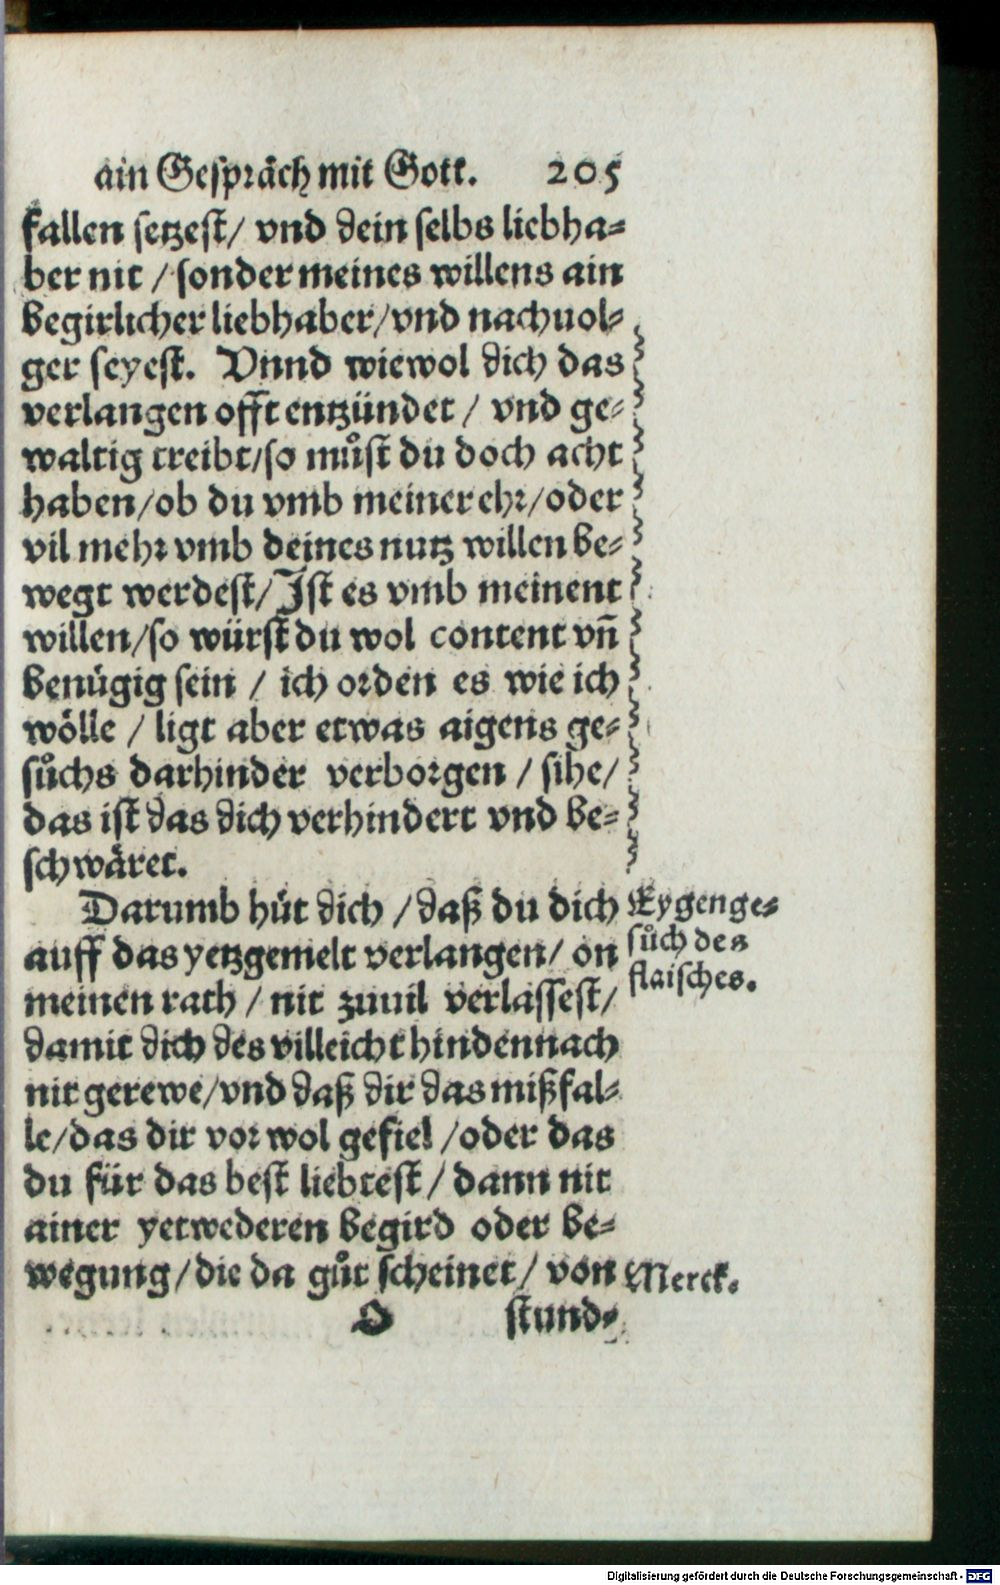 ain Gespräch mit Gott. 205
fallen setzest/ vnd dein selbs liebha⸗
ber nit / sonder meines willens ain
begirlicher liebhaber/vnd nachuol⸗
ger seyest. Vnnd wiewol dich das
verlangen offt entzündet / vnd ge⸗
waltig treibt/so muͦst du doch acht
haben/ob du vmb meiner ehr/oder
vil mehr vmb deines nutz willen be⸗
wegt werdest/Ist es vmb meinent
willen/so würst du wol content vn̄
benügig sein / ich orden es wie ich
wölle / ligt aber etwas aigens ge⸗
suͦchs darhinder verborgen / sihe/
das ist das dich verhindert vnd be⸗
schwäret.
Darumb hüt dich / daß du dich
auff das yetzgemelt verlangen/ on
meinen rath / nit zuuil verlassest/
damit dich des villeicht hindennach
nit gerewe/vnd daß dir das mißfal⸗
le/das dir vor wol gefiel /oder das
du für das best liebtest/ dann nit
ainer yetwederen begird oder be⸗
wegung/die da guͦt scheinet/ von
Eygenge⸗
suͦch des
flaisches.
Merck.
O stund⸗
Digitalisierung gefördert durch die Deutsche Forschungsgemeinschaft - DFG